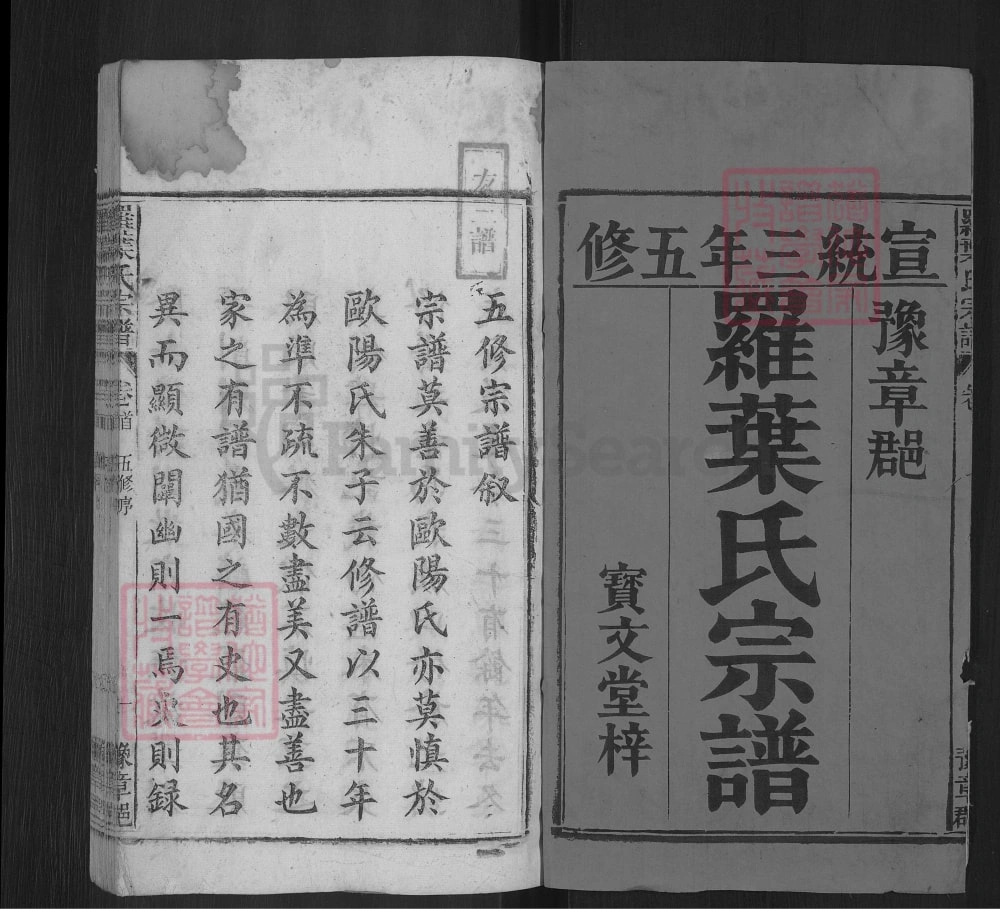 宣統三年五修
豫章郡
羅葉氏宗譜
寶文堂梓
友三譜
五修宗譜敘
宗譜莫善於歐陽氏亦莫慎於
歐陽氏朱子云修譜以三十年
為準不疏不數盡美又盡善也
家之有譜猶國之有史也其名
異而顯微闡幽則一焉史則録
羅葉氏宗譜
卷首
五修序
一
豫章郡
FamilySearch